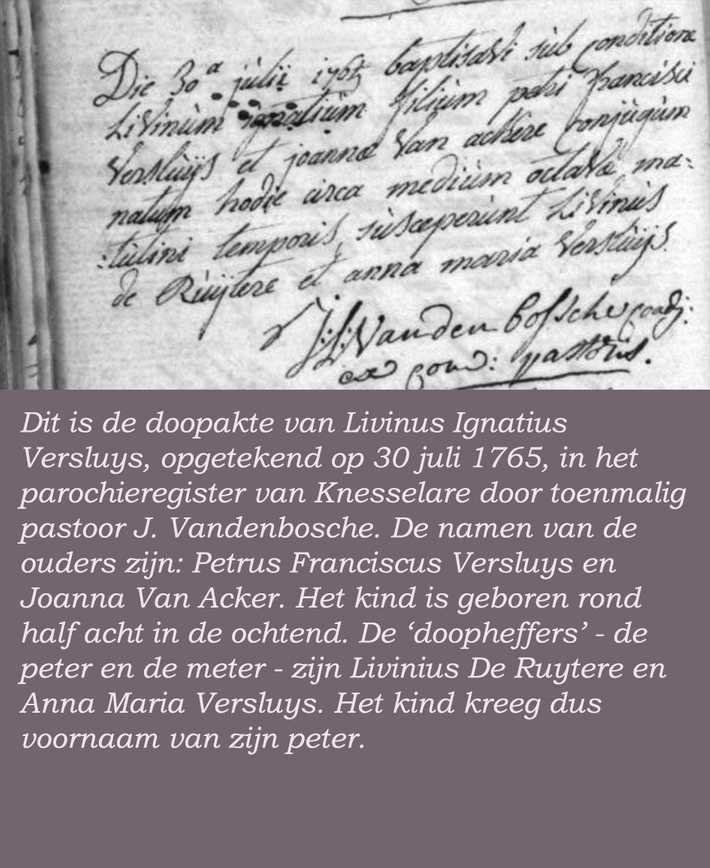 Die 30ª julii 1765 baptisavi sub conditione
Livinum ignatium filium petri francisci
Versluijs et joannæ Van ackere conjugùm
natum hodie circa mediùm octavæ ma-
:tùtini temporis, sùscepérùnt Livinùs
de Rùijtere et anna maria Versluijs.
J: Vanden bossche coadj:
ex com: pastoris.
Dit is de doopakte van Livinus Ignatius
Versluys, opgetekend op 30 juli 1765, in het
parochieregister van Knesselare door toenmalig
pastoor J. Vandenbosche. De namen van de
ouders zijn: Petrus Franciscus Versluys en
Joanna Van Acker. Het kind is geboren rond
half acht in de ochtend. De ‘doopheffers’ - de
peter en de meter - zijn Livinius De Ruytere en
Anna Maria Versluys. Het kind kreeg dus
voornaam van zijn peter.